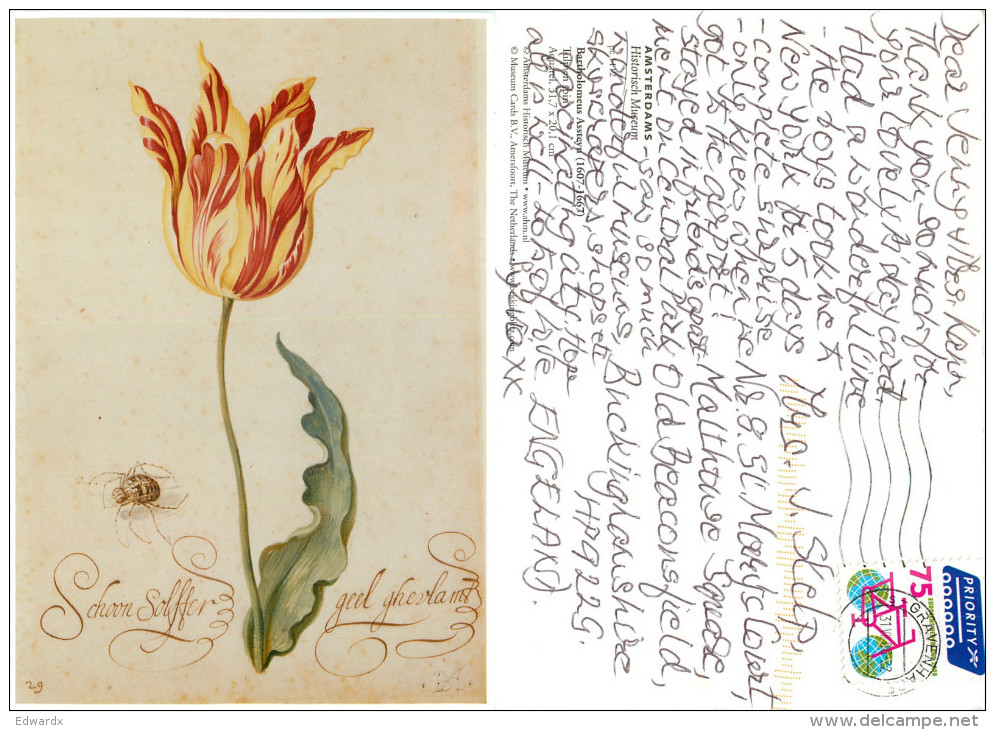 Schoon Solffer geel ghevlamt
29
Dear Jenny & Mrs. Kann,
Thank you so much for
your lovely B'day card.
Had a wonderful time
- the boys took me to
New York for 5 days
- complete surprise
- only knew when we
got to the airport!
stayed in friends apart-
ment on Central Park
- saw so much
wonderful museums,
skyscrapers, shops etc
fascinating city. Hope
all is well - lots of love
XX
J.
No. 8. St. Mary's Court,
Malthouse Square,
Old Beaconsfield,
Buckinghamshire
HP9 2LG.
ENGELAND.
AMSTERDAMS
Historisch Museum
Bartholomeus Assteyn (1607-1667)
Aquarel, 31,7 x 20,1 cm
© Amsterdams Historisch Museum • www.ahm.nl
© Museum Cards B.V., Amersfoort, The Netherlands
PRIORITY
75
'S-GRAVENHAGE
Edwardx
delcampe.net